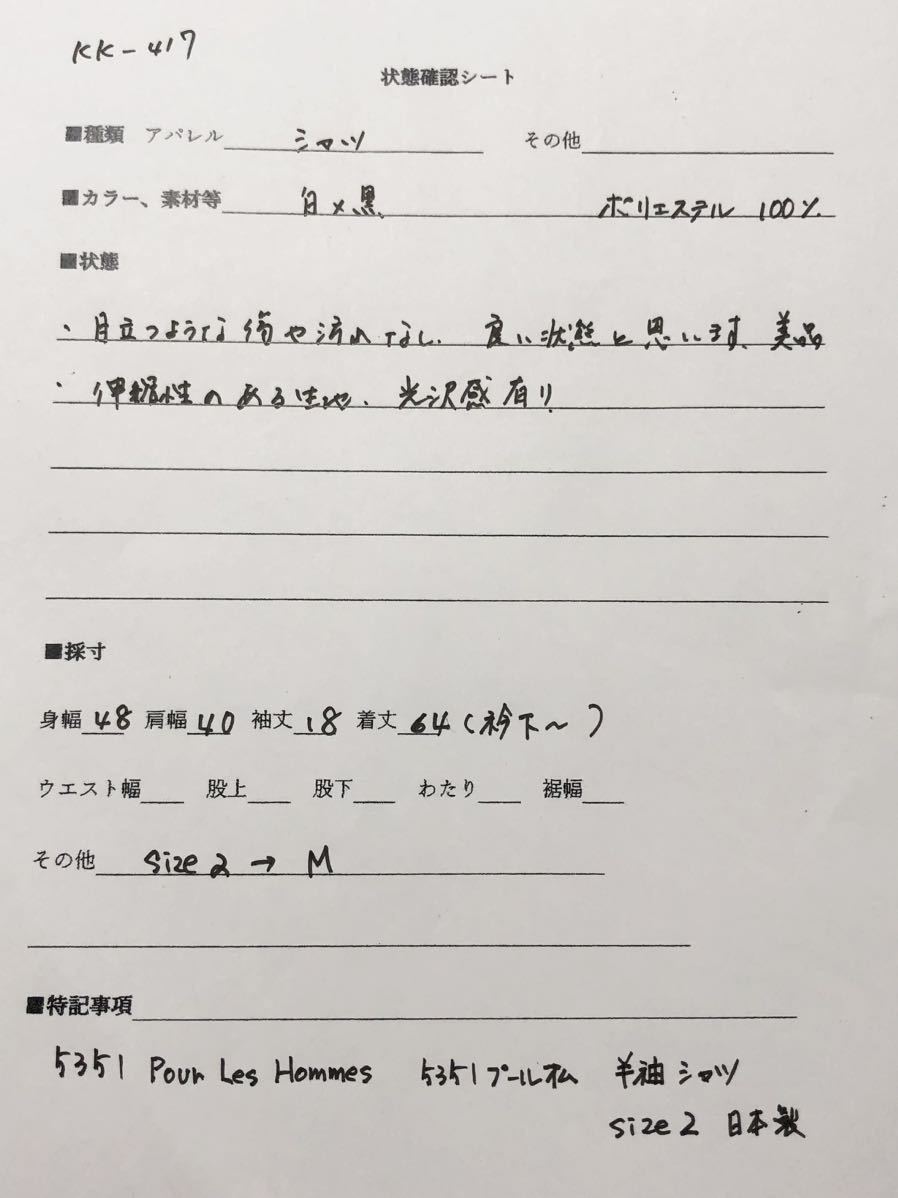 KK-417
状態確認シート
■種類 アパレル シャツ その他
■カラー、素材等 白×黒 ポリエステル 100%
■状態
・目立つような傷や汚れなし、良い状態と思います、美品
・伸縮性のある生地、光沢感有り
■採寸
身幅 48 肩幅 40 袖丈 18 着丈 64 (衿下~)
ウエスト幅 股上 股下 わたり 裾幅
その他 size 2 → M
■特記事項
5351 Pour Les Hommes 5351プールオム 半袖シャツ
size 2 日本製